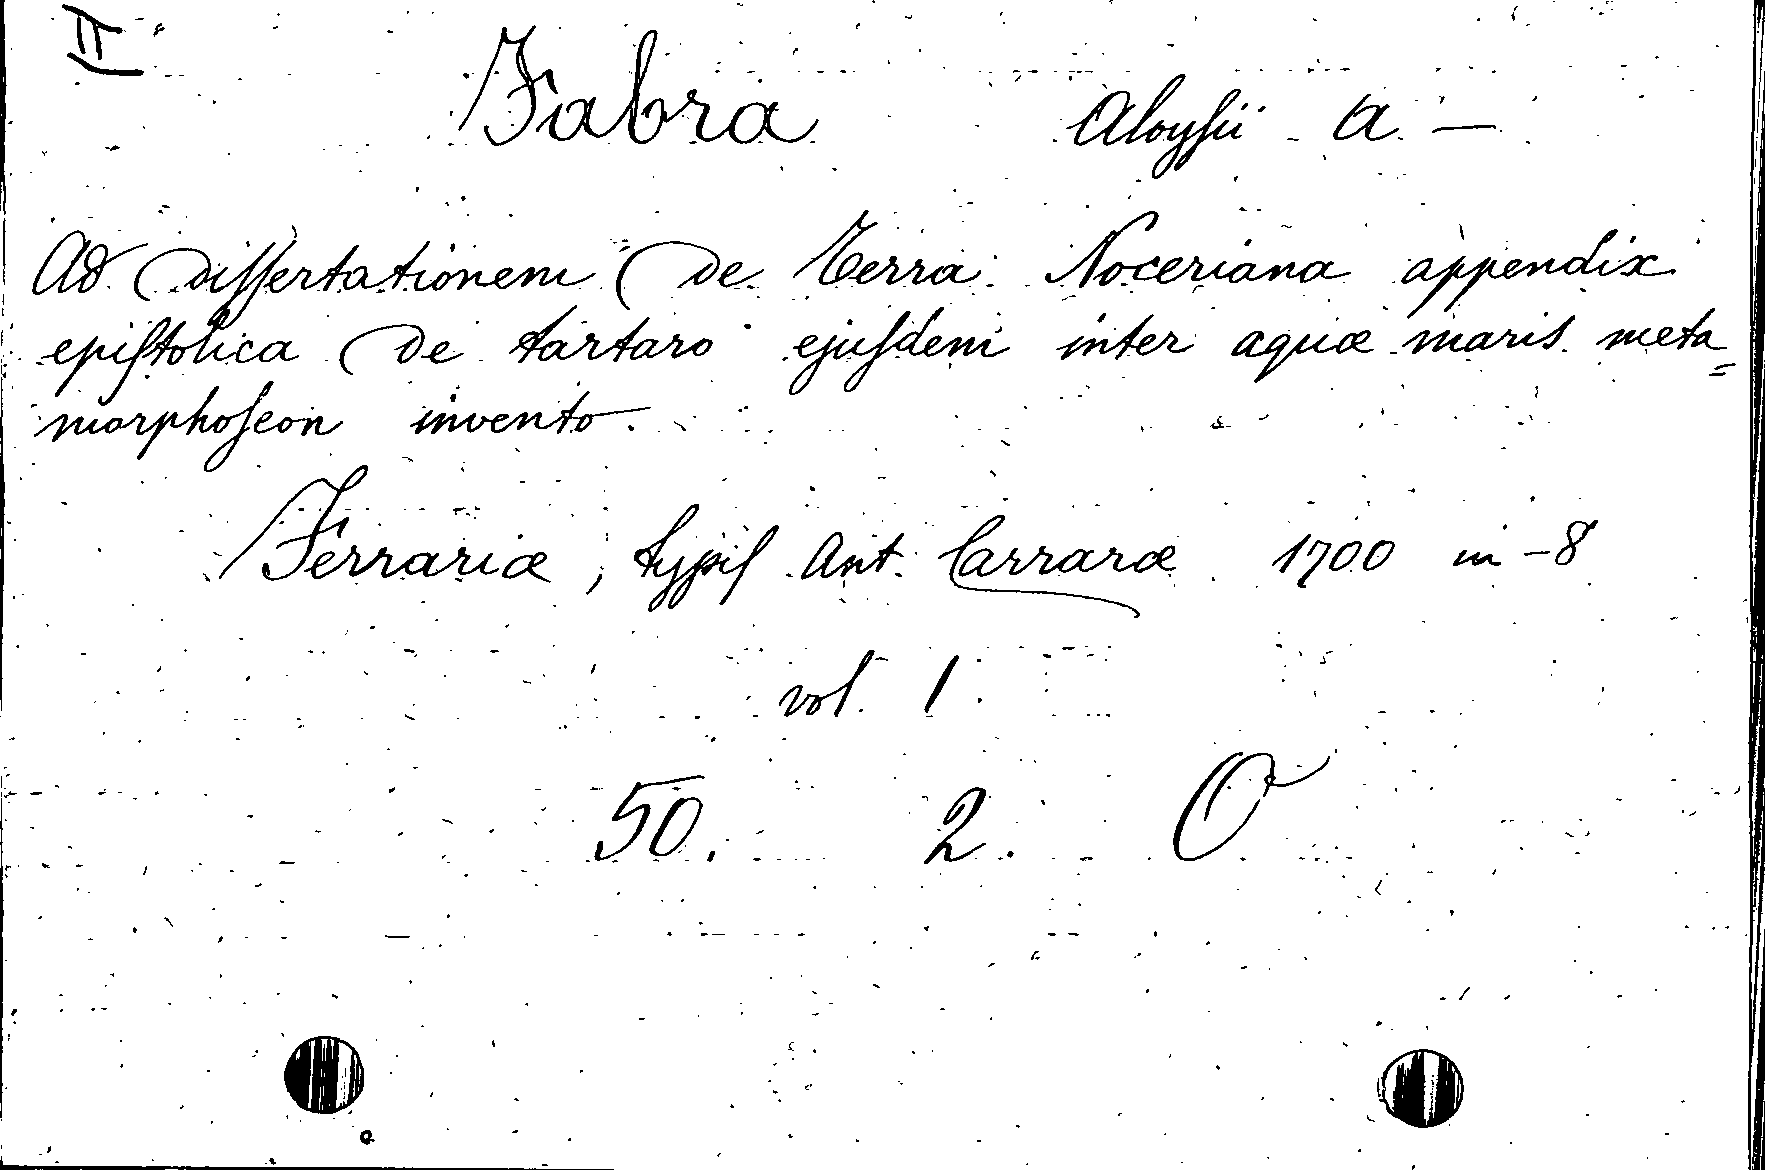 II
Fabra Aloysii a —
Ad Dissertationem De Terra Noceriana appendix
epistolica De tartaro ejusdem inter aquæ maris meta=
morphoseon invento.
Ferrariæ, typis Ant. Carraræ 1700 in-8
vol. 1
50. 2. O